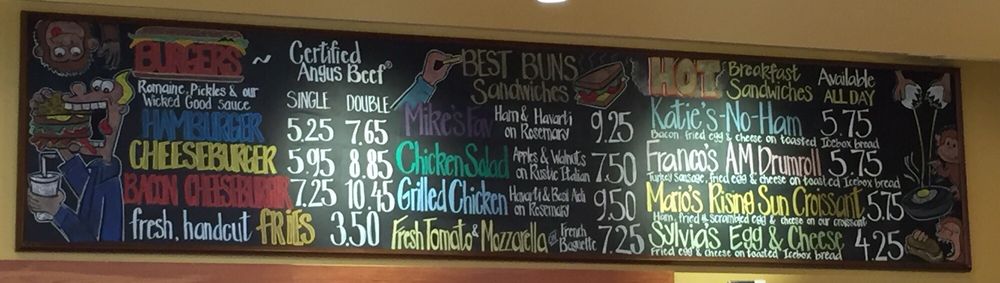 BURGERS ~ Certified Angus Beef®
Romaine, Pickles & our
Wicked Good sauce
SINGLE DOUBLE
HAMBURGER 5.25 7.65
CHEESEBURGER 5.95 8.85
BACON CHEESEBURGER 7.25 10.45
fresh, handcut FRIES 3.50
BEST BUNS
Sandwiches
Mike's Fav Ham & Havarti on Rosemary 9.25
Chicken Salad Apples & Walnuts on Rustic Italian 7.50
Grilled Chicken Havarti & Basil Aioli on Rosemary 9.50
Fresh Tomato & Mozzarella on French Baguette 7.25
HOT Breakfast Sandwiches Available ALL DAY
Katie's-No-Ham 5.75
Bacon, fried egg & cheese on toasted Icebox bread
Franco's A.M. Drumroll 5.75
Turkey Sausage, fried egg & cheese on toasted Icebox bread
Mario's Rising Sun Croissant 5.75
Ham, fried & scrambled egg & cheese on our croissant
Sylvia's Egg & Cheese 4.25
Fried egg & cheese on toasted Icebox bread